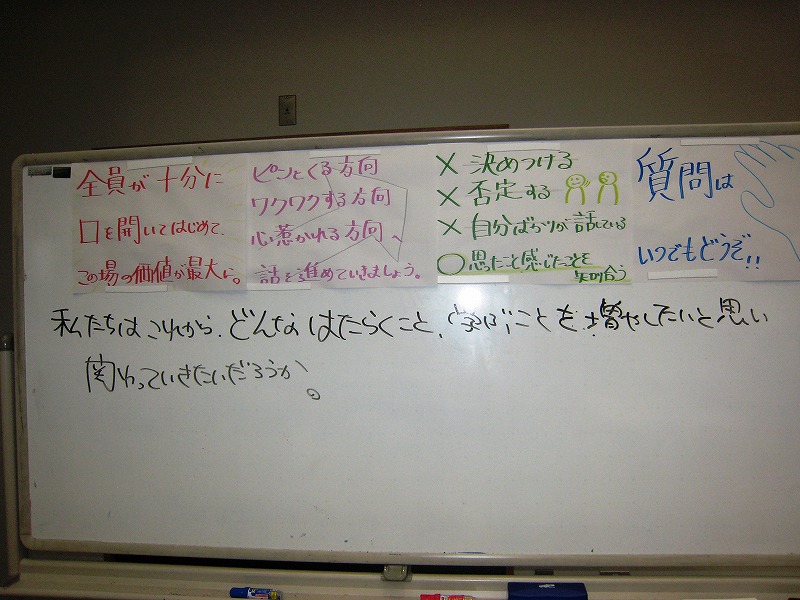 全員が十分に
口を開いてはじめて、
この場の価値が最大に。
ピンとくる方向
ワクワクする方向
心惹かれる方向へ
話を進めていきましょう。
× 決めつける
× 否定する
× 自分ばかりが話している
○ 思ったこと感じたことを
知り合う
質問は
いつでもどうぞ!!
私たちはこれから、どんなはたらくこと、学ぶことを増やしたいと思い
関わっていきたいだろうか。